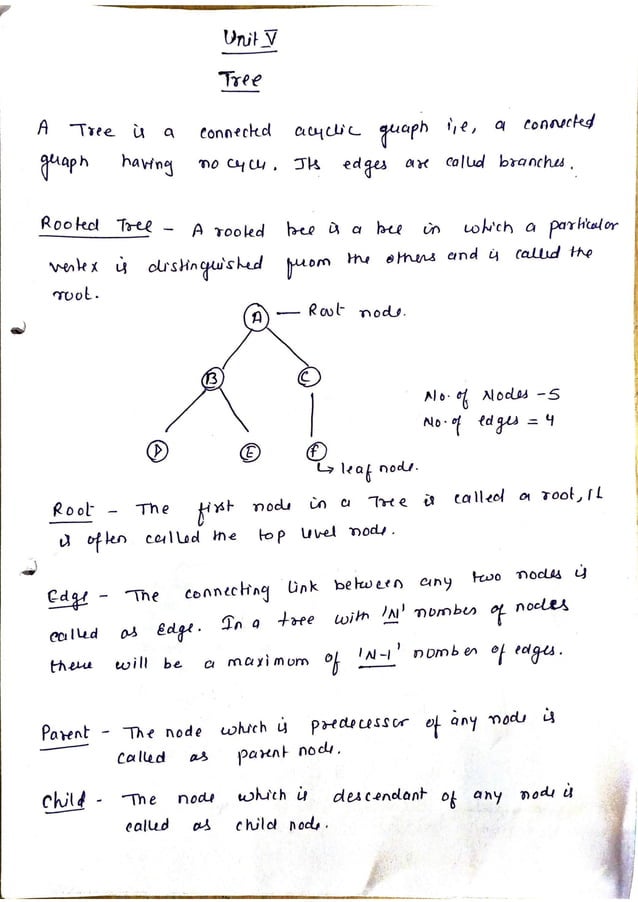 Unit V
Tree
A Tree is a connected acyclic graph i,e, a connected
graph having no cycle. Its edges are called branches.
Rooted Tree - A rooted tree is a tree in which a particular
vertex is distinguished from the others and is called the
root.
A — Root node.
B C
No. of Nodes - 5
No. of edges = 4
D E F
↳ leaf node.
Root - The first node in a Tree is called a root, it
is often called the top level node.
Edge - The connecting link between any two nodes is
called as Edge. In a tree with 'N' number of nodes
there will be a maximum of 'N-1' number of edges.
Parent - The node which is predecessor of any node is
called as parent node.
Child - The node which is descendant of any node is
called as child node.